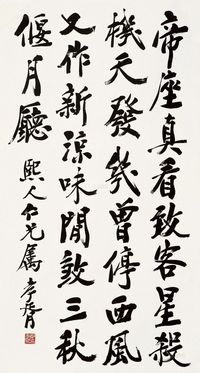 帝座真看敢客星殺
機天發幾曾停西風
又作新涼味閒三秋
偃月廳 熙人仁兄屬 孝胥